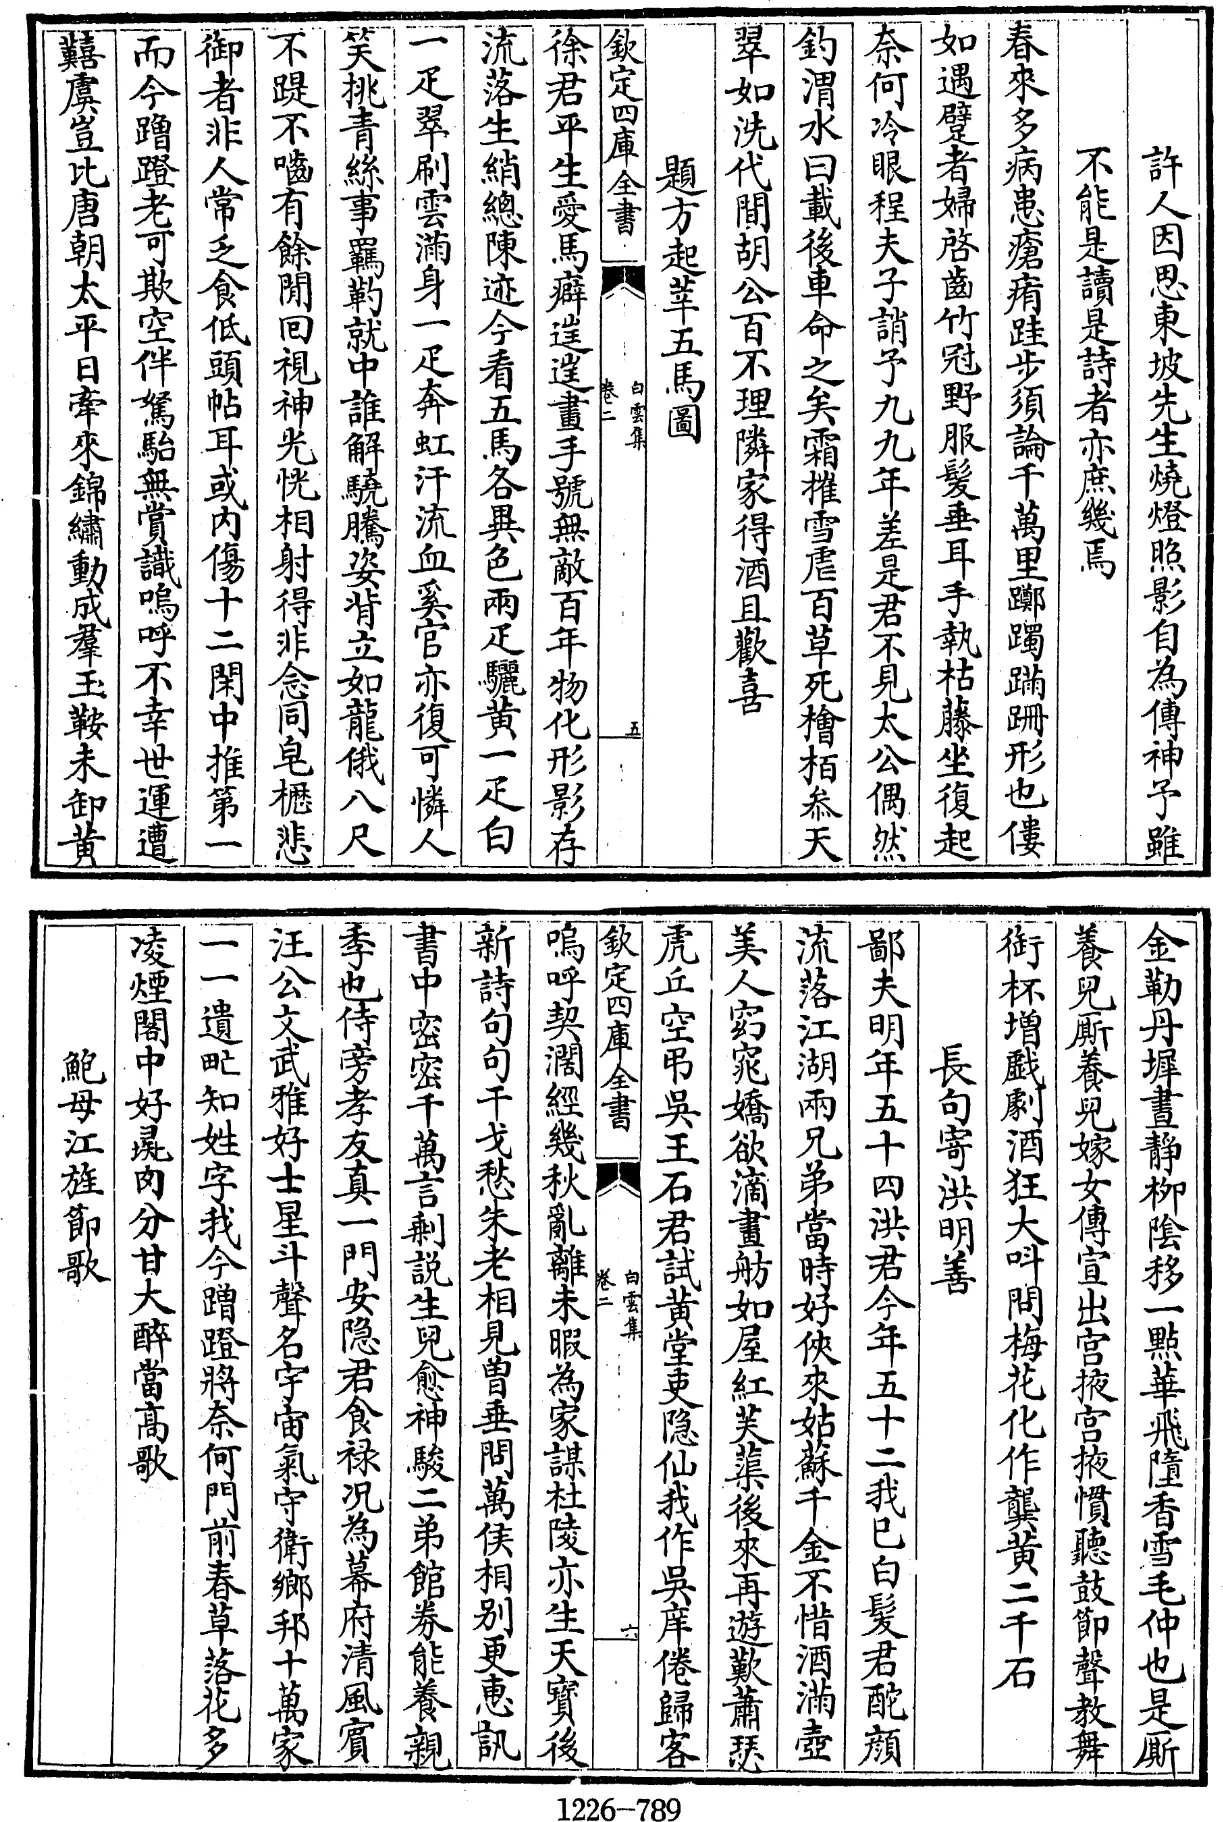 許人因思東坡先生燒燈照影自為傳神予雖
不能是讀是詩者亦庶幾焉
春來多病患瘡痏跬步須論千萬里躑躅蹣跚形也僂
如遇躄者婦啓齒竹冠野服髪垂耳手執枯藤坐復起
奈何冷眼程夫子誚予九九年差是君不見太公偶然
釣渭水曰載後車命之矣霜摧雪虐百草死檜栢叅天
翠如洗代間胡公百不理隣家得酒且歡喜
題方起莘五馬圖
欽定四庫全書
白雲集
卷二
五
徐君平生愛馬癖逞逞畫手號無敵百年物化形影存
流落生綃總陳迹今看五馬各異色兩疋驪黄一疋白
一疋翠刷雲滿身一疋奔虹汗流血奚官亦復可憐人
笑挑青絲事羈靮就中誰解驍騰姿背立如龍俄八尺
不踶不嚙有餘閒回視神光恍相射得非念同皂櫪悲
御者非人常乏食低頭帖耳或内傷十二閑中推第一
而今蹭蹬老可欺空伴駑駘無賞識嗚呼不幸世運遭
囏虞豈比唐朝太平日牽來錦繡動成羣玉鞍未卸黄
金勒丹墀晝靜柳陰移一點華飛墮香雪毛仲也是厮
養兒厮養兒嫁女傳宣出宫掖宫掖慣聽鼓節聲教舞
銜杯增戯劇酒狂大呌問梅花化作龔黄二千石
長句寄洪明善
鄙夫明年五十四洪君今年五十二我已白髪君酡顔
流落江湖兩兄弟當時好俠來姑蘇千金不惜酒滿壺
美人窈窕嬌欲滴畫舫如屋紅芙蕖後來再遊歎蕭瑟
虎丘空弔吳王石君試黄堂吏隐仙我作吳庠倦歸客
欽定四庫全書
白雲集
卷二
六
嗚呼契濶經幾秋亂離未暇為家謀杜陵亦生天寳後
新詩句句干戈愁朱老相見曽垂問萬侯相别更惠訊
書中密密千萬言剩説生兒愈神駿二弟館券能養親
季也侍旁孝友真一門安隐君食禄况為幕府清風賔
汪公文武雅好士星斗聲名宇宙氣守衛鄉邦十萬家
一一遺甿知姓字我今蹭蹬將奈何門前春草落花多
凌煙閣中好㬥肉分甘大醉當髙歌
鮑母江旌節歌
1226-789